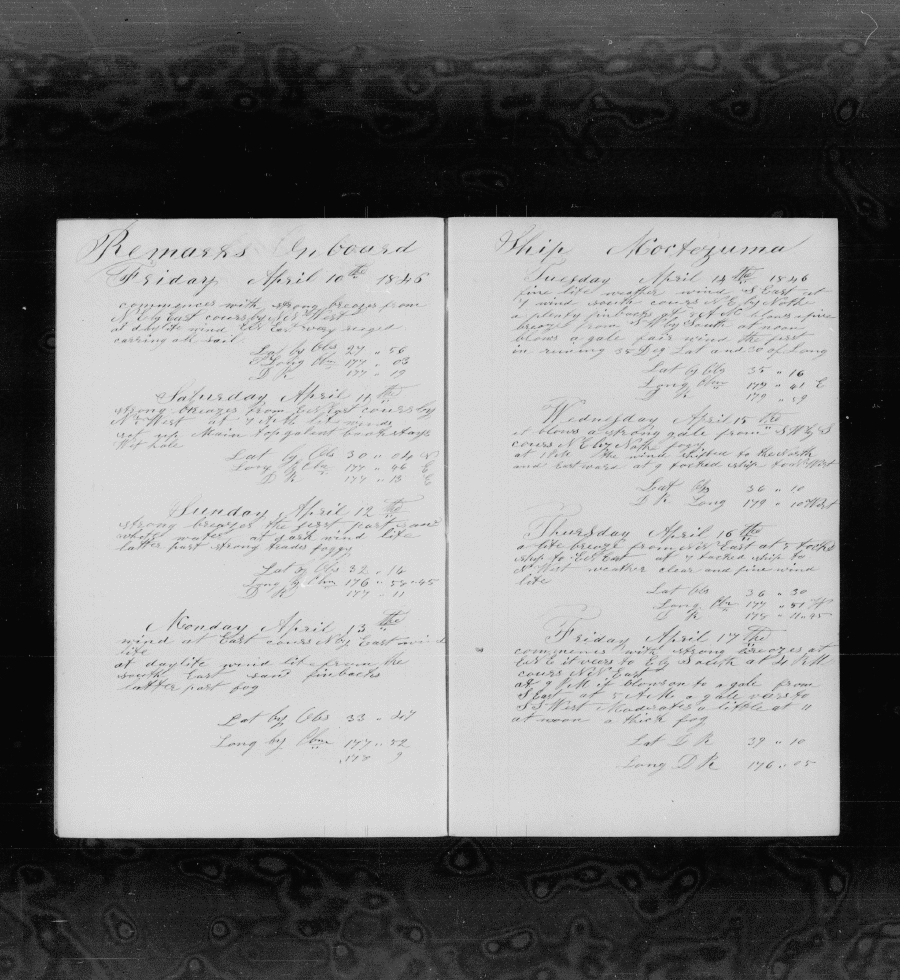 Remarks On board
Friday April 10th 1846
commences with strong breezes from
N E by East cours by N W West
at daylite wind East very ruged
carring all sail
Lat by Obs 27 " 56
Long Chm 177 " 03
D R 177 " 19
Saturday April 11th
strong breezes from East cours by
N West at 7 A M lite winds
set up Main topgalent backstays
Wet hole
Lat by Obs 30 " 04 N
Long by Chm 177 " 46 E
D R 177 " 13 E
Sunday April 12th
strong breezes the first part saw
white water at dark wind lite
latter part strong trades foggy
Lat by Obs 32 " 14
Long by Chm 176 " 54 " 45
D R 177 " 11
Monday April 13the
wind at East cours N by East wind
lite
at daylite wind lite from the
South East saw finbacks
latter part fog
Lat by Obs 33 " 47
Long by Chm 177 " 52
178 9
Ship Moctezuma
Tuesday April 14the 1846
fine lite weather wind S East at
7 wind south cours N E by Nothe
a plenty finbacks at A M blows a fine
breeze from S W by South at noon
blows a gale fair wind the first
in running 35 Deg Lat and 30 of Long
Lat by Obs 35 " 16
Long Chm 179 " 41 E
D R 179 " 59
Wednesday April 15the
it blows a strong gale from S W by S
cours N E by Noth foggy
at the wind shifted to the North
and Eastward at 9 tacked ship to N West
Lat Obs 36 " 10
D R Long 179 " 10 West
Thursday April 16the
a lite breeze from N East at 3 tacked
ship to East at 7 tacked ship to
N West weather clear and fine wind
lite
Lat Obs 36 " 30
Long Chm 177 " 51 W
D R 178 " 11 " 45
Friday April 17the
commences with strong breezes at
E N E it veers to E by South at 4 P M
cours N East
at 9 P M it blows on to a gale from
S East at 5 A M a gale vears to
S S West Moderates a little at 11
at noon a thick fog
Lat D R 39 " 10
Long D R 176 " 05